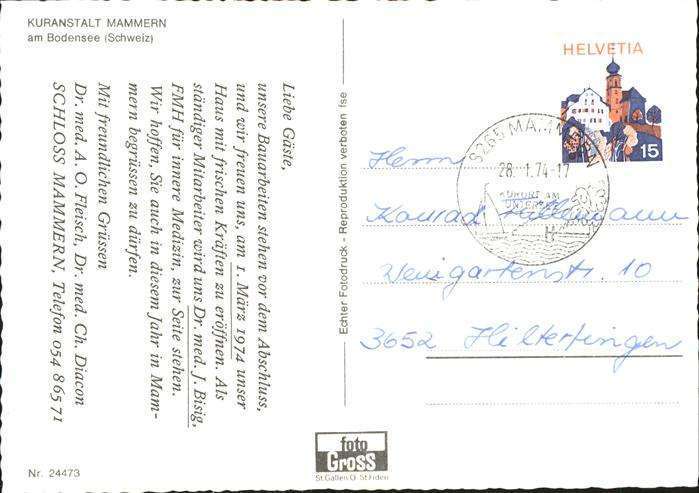 KURANSTALT MAMMERN
am Bodensee (Schweiz)
Liebe Gäste,
unsere Bauarbeiten stehen vor dem Abschluss,
und wir freuen uns, am 1. März 1974 unser
Haus mit frischen Kräften zu eröffnen. Als
ständiger Mitarbeiter wird uns Dr. med. J. Bisig,
FMH für innere Medizin, zur Seite stehen.
Wir hoffen, Sie auch in diesem Jahr in Mam-
mern begrüssen zu dürfen.
Mit freundlichen Grüssen
Dr. med. A. O. Fleisch, Dr. med. Ch. Diacon
SCHLOSS MAMMERN, Telefon 054 86571
Nr. 24473
Echter Fotodruck - Reproduktion verboten fse
foto
Gross
St.Gallen O. St.Fiden
HELVETIA
15
8265 MAMMERN
28. 1.74-17
KURORT AM
UNTERSEE
Herrn
Konrad
Weingartenstr. 10
3652 Hilterfingen